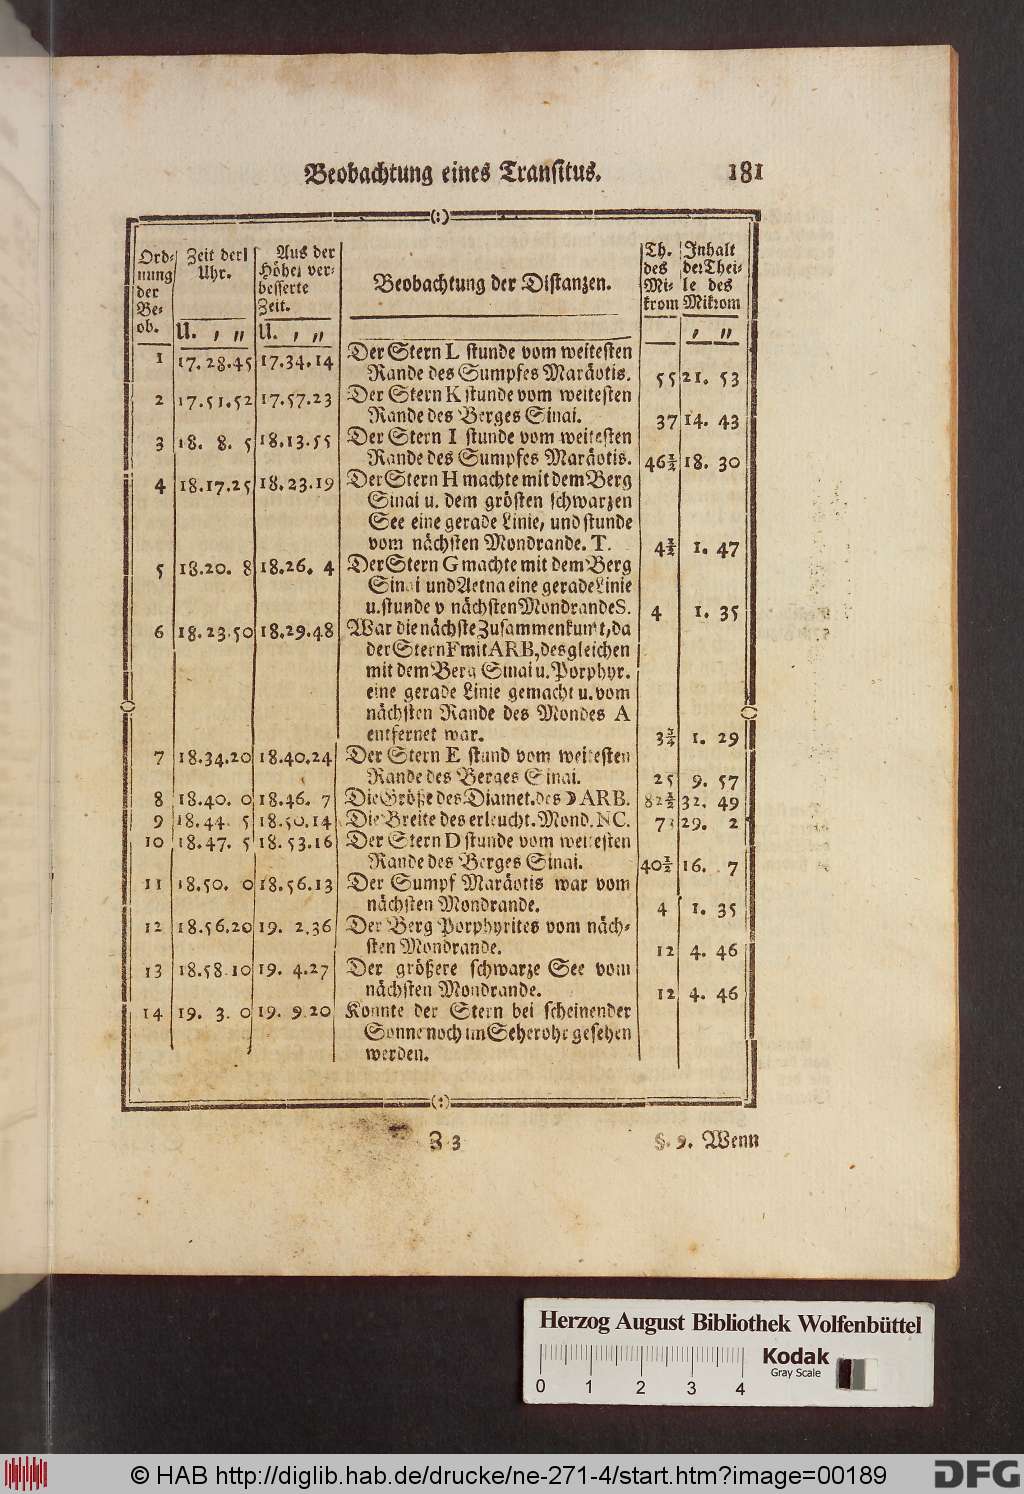 Beobachtung eines Transitus. 181
(:)
Ord- Zeit der Aus der Th. Inhalt
nung Uhr. Höhe ver- des der Thei-
der besserte Beobachtung der Distanzen. Mi- le des
Be- Zeit. krom Mikrom
ob. U. , ,, U. , ,, , ,,
1 17. 28. 45 17. 34. 14 Der Stern L stunde vom weitesten
Rande des Sumpfes Maräotis. 55 21. 53
2 17. 51. 52 17. 57. 23 Der Stern K stunde vom weitesten
Rande des Berges Sinai. 37 14. 43
3 18. 8. 5 18. 13. 55 Der Stern I stunde vom weitesten
Rande des Sumpfes Maräotis. 46½ 18. 30
4 18. 17. 25 18. 23. 19 Der Stern H machte mit dem Berg
Sinai u. dem grösten schwarzen
See eine gerade Linie, und stunde
vom nächsten Mondrande. T. 4½ 1. 47
5 18. 20. 8 18. 26. 4 Der Stern G machte mit dem Berg
Sinai und Aetna eine gerade Linie
u. stunde v nächsten Mondrande S. 4 1. 35
6 18. 23. 50 18. 29. 48 War die nächste Zusammenkunft, da
der Stern F mit ARB, desgleichen
mit dem Berg Sinai u. Porphyr.
eine gerade Linie gemacht u. vom
nächsten Rande des Mondes A
entfernet war. 3¾ 1. 29
7 18. 34. 20 18. 40. 24 Der Stern E stund vom weitesten
Rande des Berges Sinai. 25 9. 57
8 18. 40. 0 18. 46. 7 Die Größe des Diamet. des ☽ ARB. 82½ 32. 49
9 18. 44. 5 18. 50. 14 Die Breite des erleucht. Mond. NC. 73 29. 2
10 18. 47. 5 18. 53. 16 Der Stern D stunde vom weitesten
Rande des Berges Sinai. 40½ 16. 7
11 18. 50. 0 18. 56. 13 Der Sumpf Maräotis war vom
nächsten Mondrande. 4 1. 35
12 18. 56. 20 19. 2. 36 Der Berg Porphyrites vom näch-
sten Mondrande. 12 4. 46
13 18. 58. 10 19. 4. 27 Der größere schwarze See vom
nächsten Mondrande. 12 4. 46
14 19. 3. 0 19. 9 20 Konnte der Stern bei scheinender
Sonne noch im Seherohr gesehen
werden.
(:)
Z 3 §. 9. Wenn
Herzog August Bibliothek Wolfenbüttel
Kodak
Gray Scale
0 1 2 3 4
© HAB http://diglib.hab.de/drucke/ne-271-4/start.htm?image=00189 DFG